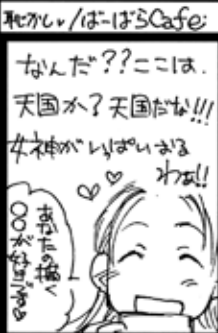 恥かし♥/ばーばらCafe
なんだ??ここは.
天国か?天国だな!!!
女神がいっぱいおる
わぁ!!
あなたの描く
〇〇が好きです♥